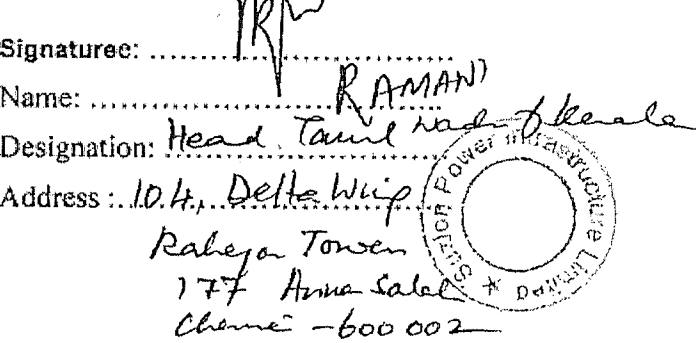 Signaturee:
Name: RAMANI
Designation: Head Tamil Nadu & Kerala
Address : 104, Delta Wing
Raheja Towers
177 Anna Salai
Chennai - 600 002
Suzlon Power Infrastructure Limited *